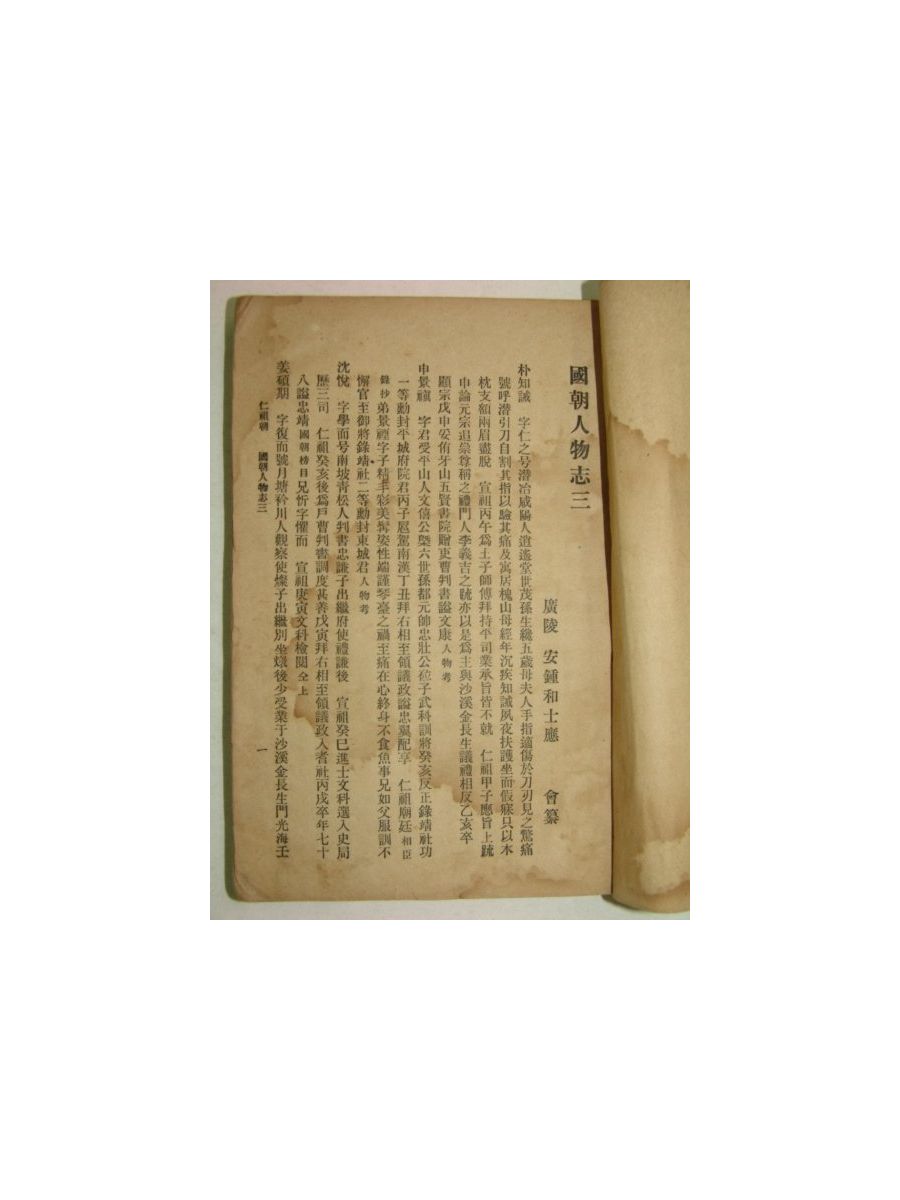 國朝人物志三
廣陵 安鍾和士應 會纂
朴知誡 字仁之号潜冶咸陽人逍遙堂世茂孫生纔五歲母夫人手指適傷於刀刃見之驚痛
號呼潜引刀自割其指以驗其痛及寓居槐山母經年沉疾知誡夙夜扶護坐而假寐只以木
枕支額兩眉盡脫 宣祖丙午爲王子師傅拜持平司業承旨皆不就 仁祖甲子應旨上䟽
申論元宗追崇尊稱之禮門人李義吉之䟽亦以是爲主與沙溪金長生議禮相反乙亥卒
顯宗戊申妥侑牙山五賢書院贈吏曹判書謚文康 人物考
申景禛 字君受平山人文僖公槩六世孫都元帥忠壯公砬子武科訓將癸亥反正錄靖社功
一等勳封平城府院君丙子扈駕南漢丁丑拜右相至領議政謚忠翼配享 仁祖廟廷 相臣
錄抄 弟景禋字子精手彩美髯姿性端謹琴臺之禍至痛在心終身不食魚事兄如父服訓不
懈官至御將錄靖社二等勳封東城君 人物考
沈悅 字學而号南坡靑松人判書忠謙子出繼府使禮謙後 宣祖癸巳進士文科選入史局
歷三司 仁祖癸亥後爲戶曹判書調度甚善戊寅拜右相至領議政入耆社丙戌卒年七十
八謚忠靖 國朝榜目 兄忻字懼而 宣祖庚寅文科檢閱 仝上
姜碩期 字復而號月塘衿川人觀察使燦子出繼別坐燉後少受業于沙溪金長生門光海壬
仁祖朝 國朝人物志三 一